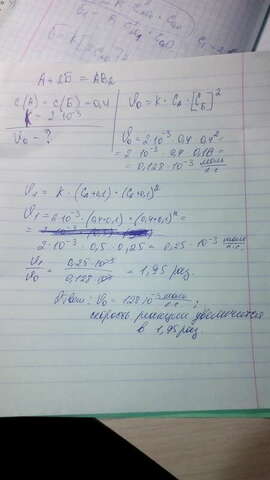 А + 2Б = АВ₂
c(A) = c(Б) = 0,4
k = 2·10⁻³
V₀ - ?
V₀ = k · Cₐ · [CБ]²
V₀ = 2·10⁻³ · 0,4 · 0,4² =
= 2·10⁻³ · 0,4 · 0,16 =
= 0,128·10⁻³ моль/л·с
V₁ = k · (Cₐ+0,1) · (CБ+0,1)²
V₁ = 2·10⁻³ · (0,4+0,1) · (0,4+0,1)² =
=
2·10⁻³ · 0,5 · 0,25 = 0,25·10⁻³ моль/л·с
V₁/V₀ = 0,25·10⁻³/0,128·10⁻³ = 1,95 раз
Ответ: V₀ = 128·10⁻³ моль/л·с;
скорость реакции увеличится
в 1,95 раз